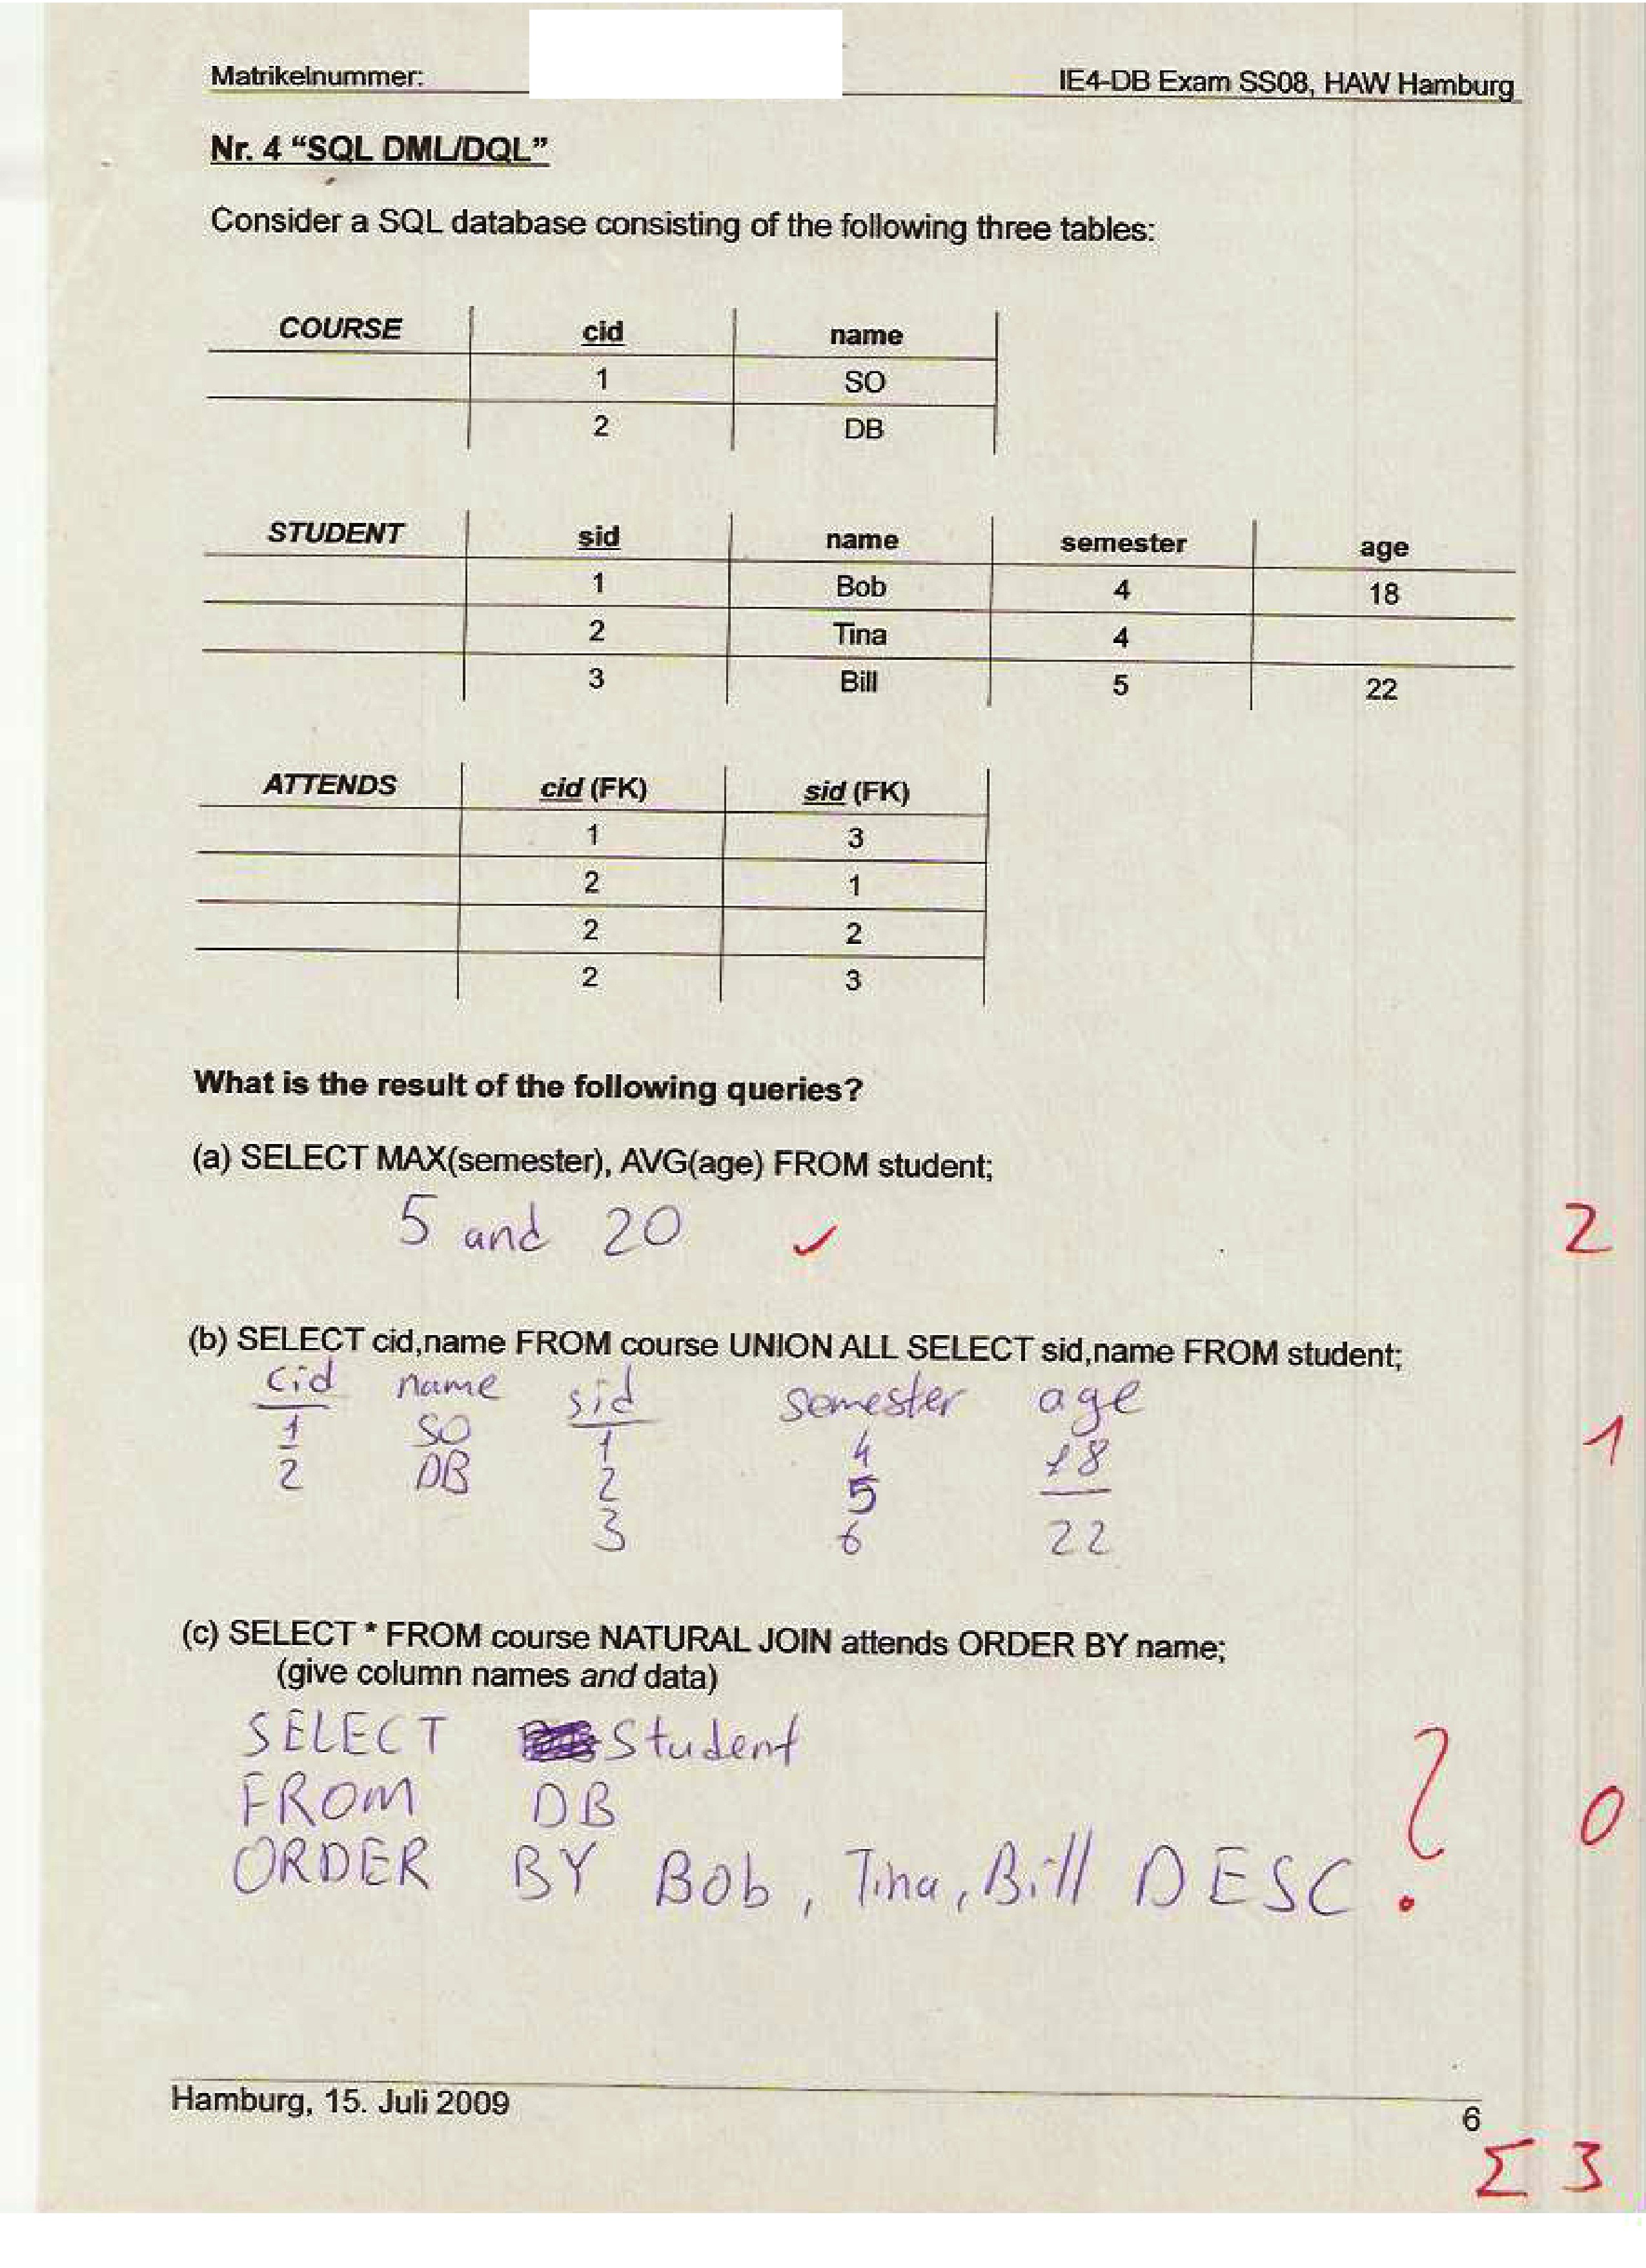 Matrikelnummer: IE4-DB Exam SS08, HAW Hamburg
Nr. 4 “SQL DML/DQL”
Consider a SQL database consisting of the following three tables:
COURSE cid name
1 SO
2 DB
STUDENT sid name semester age
1 Bob 4 18
2 Tina 4
3 Bill 5 22
ATTENDS cid (FK) sid (FK)
1 3
2 1
2 2
2 3
What is the result of the following queries?
(a) SELECT MAX(semester), AVG(age) FROM student;
5 and 20 ✓ 2
(b) SELECT cid,name FROM course UNION ALL SELECT sid,name FROM student;
cid name sid semester age
1 SO 1 4 18
2 DB 2 5 — 1
3 6 22
(c) SELECT * FROM course NATURAL JOIN attends ORDER BY name;
(give column names and data)
SELECT Student
FROM DB ? 0
ORDER BY Bob, Tina, Bill DESC
Hamburg, 15. Juli 2009
6
Σ 3